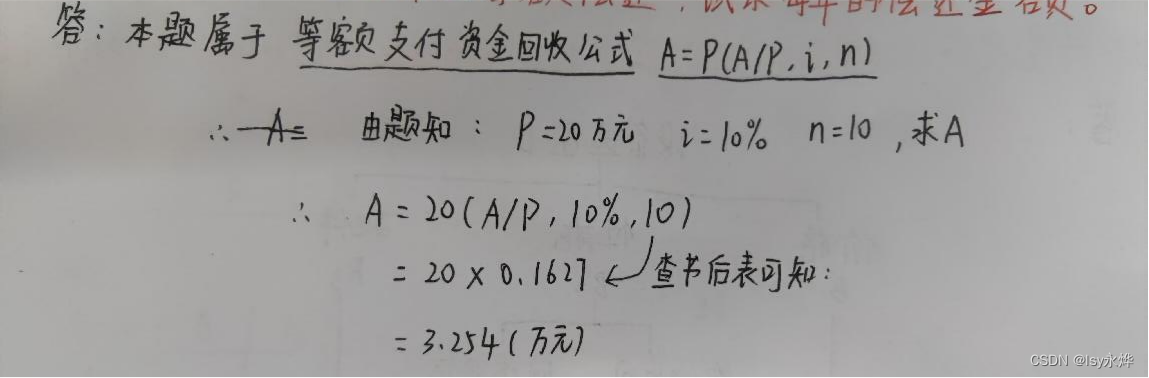 试求每年的偿还金额。
答：本题属于 等额支付资金回收公式 A=P(A/P,i,n)
∴ A= 由题知： P=20万元 i=10% n=10 ,求A
∴ A = 20(A/P, 10%, 10)
= 20 × 0.1627 ← 查书后表可知：
= 3.254(万元)
CSDN @lsy永烨